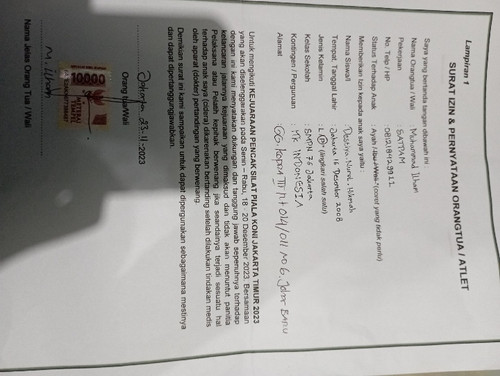 Lampiran 1
SURAT IZIN & PERNYATAAN ORANGTUA / ATLET
Saya yang bertanda tangan dibawah ini
Nama Orangtua / Wali : Muhammad Ilham
Pekerjaan : SATPAM
No. Telp / HP
Status Terhadap Anak : Ayah / Ibu / Wali *(coret yang tidak perlu)
Memberikan Izin kepada anak saya yaitu :
Nama Siswa/i : Destya Nurul Hikmah
Tempat, Tanggal Lahir : Jakarta 16 Desember 2008
Jenis Kelamin : L / P (lingkari salah satu)
Kelas Sekolah : SMPN 76 Jakarta
Kontingen / Perguruan : MTK INDONESIA
Alamat : GG. KOPDA III rt 014/011 No 6, Jalan BARU
Untuk mengikuti KEJUARAAN PENCAK SILAT PIALA KONI JAKARTA TIMUR 2023
yang akan diselenggarakan pada Senin – Rabu, 18 - 20 Desember 2023. Bersamaan
dengan ini kami menyatakan dukungan dan tanggung jawab sepenuhnya terhadap
kelancaran jalannya kejuaraan yang dimaksud dan tidak akan menuntut panitia
Pelaksana atau Pelatih kepihak berwenang jika seandainya terjadi sesuatu hal
terhadap anak saya (cidera) dikarenakan bertanding setelah dilakukan tindakan medis
oleh aparat (dokter) pertandingan yang berwenang.
Demikian surat ini kami sampaikan untuk dapat dipergunakan sebagaimana mestinya
dan dapat dipertanggungjawabkan.
Jakarta 23-11-2023
Orang tua/Wali
10000
METERAI
TEMPEL
M. Ilham
Nama Jelas Orang Tua / Wali